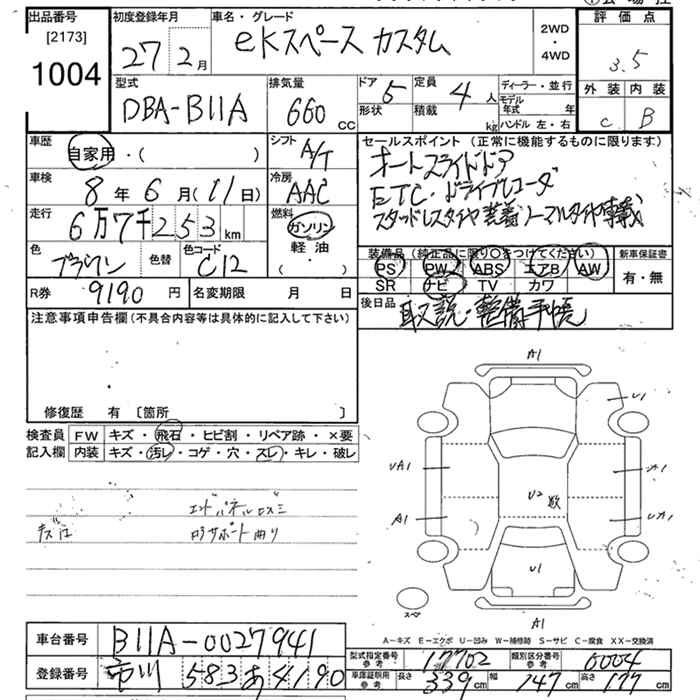 出品番号
[2173]
1004
初度登録年月
27 2月
車名・グレード
eKスペース カスタム
2WD
・
4WD
評価点
3.5
外装 内装
C B
型式
DBA-B11A
排気量
660 CC
ドア 5
形状
定員 4 人
積載 kg
ディーラー・並行
モデル年式 年
ハンドル 左・右
車歴
自家用・( )
シフト
A/T
車検
8年 6月(11日)
冷房
AAC
走行
6万7千253km
燃料
ガソリン
軽油
( ・ )
色
ブラウン
色替
色コード
C12
R券 9190円
名変期限 月 日
セールスポイント(正常に機能するものに限ります)
オートスライドドア
ETC・ドライブレコーダ
スタッドレスタイヤ装着 ノーマルタイヤ車載
装備品(純正品に限り〇をつけてください)
PS PW ABS エアB AW
SR ナビ TV カワ
新車保証書
有・無
後日品
取説・整備手帳
注意事項申告欄(不具合内容等は具体的に記入して下さい)
修復歴 有 〔箇所 〕
検査員
記入欄
FW キズ・飛石・ヒビ割・リペア跡・×要
内装 キズ・汚レ・コゲ・穴・スレ・キレ・破レ
エンドパネルロズミ
ロアサポート曲り
A1
U1
UA1
A1
U2 数
U1
A1
スペア
A-キズ E-エクボ U-凹み W-補修跡 S-サビ C-腐食 XX-交換済
車台番号 B11A-0027941
登録番号 市川 583 あ 4190
型式指定番号
参考
17702
類別区分番号
参考
0004
車庫証明用
参考
長さ 339cm 幅 147cm 高さ 177cm